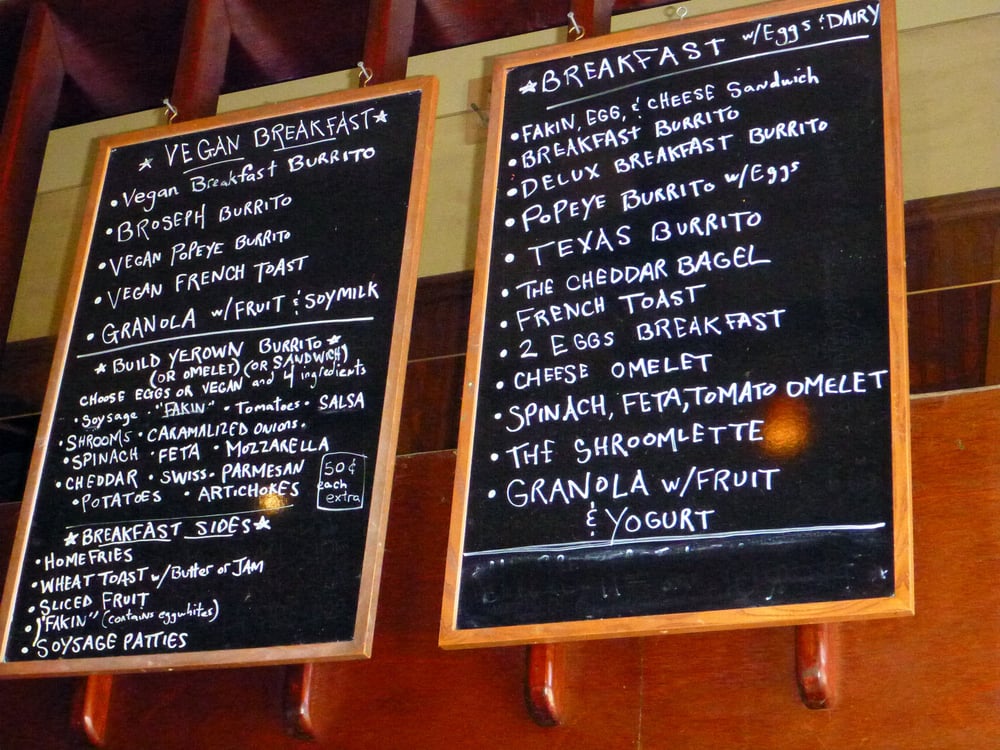 ★ VEGAN BREAKFAST ★
• Vegan Breakfast BURRITO
• BROSEPH BURRITO
• VEGAN POPEYE BURRITO
• VEGAN FRENCH TOAST
• GRANOLA w/FRUIT & SOYMILK
★ BUILD YEROWN BURRITO ★
(OR OMELET) (OR SANDWICH!)
CHOOSE EGGS OR VEGAN and 4 ingredients
• Soysage • "FAKIN" • Tomatoes • SALSA
• SHROOMS • CARAMALIZED ONIONS •
• SPINACH • FETA • MOZZARELLA
• CHEDDAR • SWISS • PARMESAN
• POTATOES • ARTICHOKES
50¢
each
extra
★ BREAKFAST SIDES ★
• HOMEFRIES
• WHEAT TOAST w/Butter or JAM
• SLICED FRUIT
• "FAKIN" (contains eggwhites)
• SOYSAGE PATTIES
★ BREAKFAST w/Eggs & DAIRY
• FAKIN, EGG, & CHEESE Sandwich
• BREAKFAST BURRITO
• DELUX BREAKFAST BURRITO
• POPEYE BURRITO w/Eggs
• TEXAS BURRITO
• THE CHEDDAR BAGEL
• FRENCH TOAST
• 2 EGGS BREAKFAST
• CHEESE OMELET
• SPINACH, FETA, TOMATO OMELET
• THE SHROOMLETTE
• GRANOLA w/FRUIT
& YOGURT